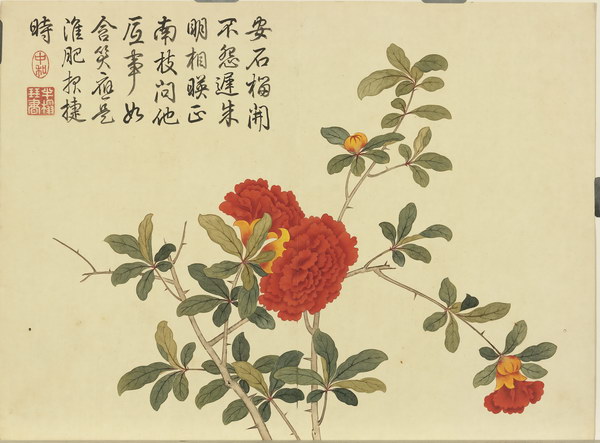 安石榴開
不怨遲朱
明相暎正
南枝問他
底事如
含笑應是
淮肥報捷
時
中和